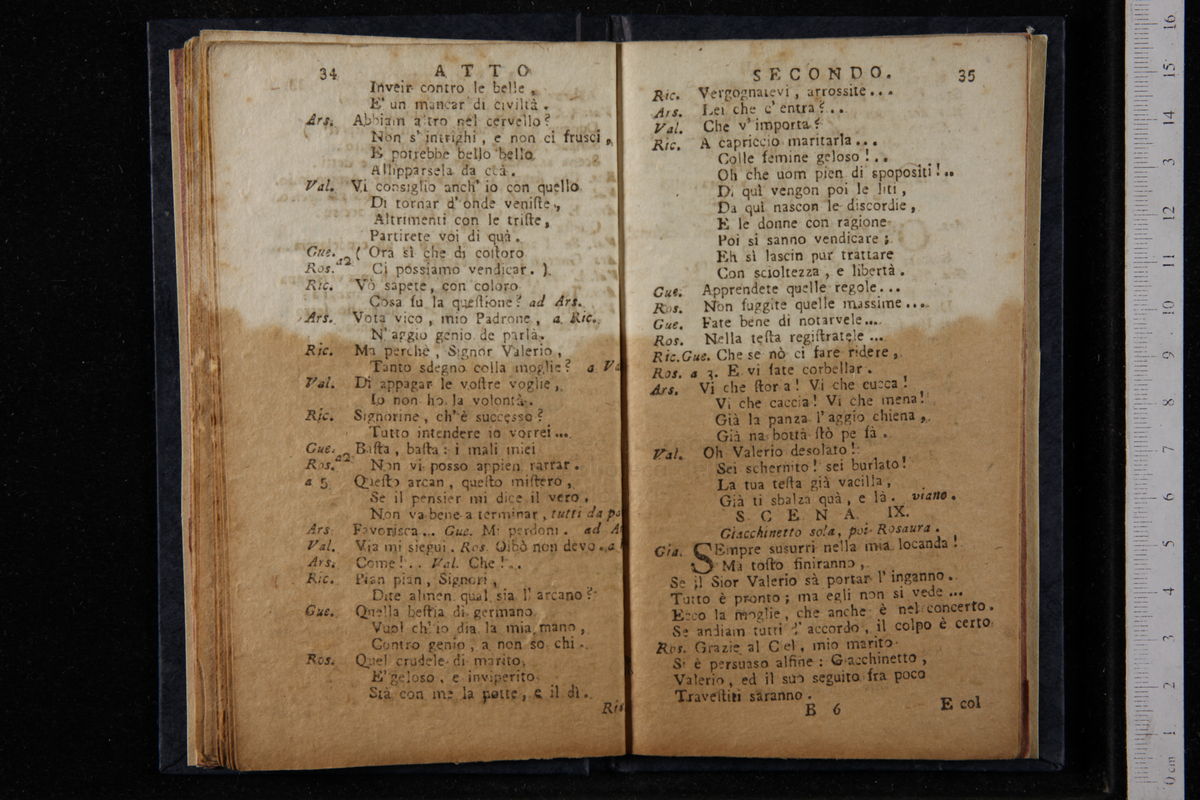 34 ATTO
Inveir contro le belle,
E' un mancar di civiltà.
Ars. Abbiam altro nel cervello?
Non s'intrighi, e non ci frusci,
E potrebbe bello bello
Allipparsela da ccà.
Val. Vi consiglio anch' io con quello
Di tornar d' onde veniste,
Altrimenti con le triste,
Partirete voi di quà.
Gue. ( Ora sì che di costoro
Ros. a2 Ci possiamo vendicar. )
Ric. Vò sapete, con coloro
Cosa fu la questione? ad Ars.
Ars. Vota vico, mio Padrone, a Ric.
N'aggio genio de parlà.
Ric. Ma perchè, Signor Valerio,
Tanto sdegno colla moglie? a Va
Val. Di appagar le vostre voglie,
Io non ho la volontà.
Ric. Signorine, ch'è successo?
Tutto intendere io vorrei...
Gue. Basta, basta: i mali miei
Ros. a2 Non vi posso appien narrar.
a 5 Questo arcan, questo mistero,
Se il pensier mi dice il vero,
Non va bene a terminar, tutti da
Ars. Favorisca... Gue. Mi perdoni. ad
Val. Via mi siegui. Ros. Oibò non devo. a
Ars. Come!.. Val. Che!...
Ric. Pian pian, Signori,
Dite almen qual sia l' arcano?
Gue. Quella bestia di germano
Vuol ch'io dia la mia mano,
Contro genio, a non so chi.
Ros. Quel crudele di marito,
E' geloso, e inviperito
Stà con me la notte, e il dì.
Ris
SECONDO. 35
Ric. Vergognatevi, arrossite...
Ars. Lei che c'entra?..
Val. Che v'importa?
Ric. A capriccio maritarla...
Colle femine geloso!..
Oh che uom pien di spopositi!..
Di quì vengon poi le liti,
Da quì nascon le discordie,
E le donne con ragione
Poi si sanno vendicare;
Eh si lascin pur trattare
Con scioltezza, e libertà.
Gue. Apprendete quelle regole...
Ros. Non fuggite quelle massime...
Gue. Fate bene di notarvele...
Ros. Nella testa registratele...
Ric. Gue. Che se nò ci fare ridere,
Ros. a 3. E vi fate corbellar.
Ars. Vi che storia! Vi che cucca!
Vi che caccia! Vi che mena!
Già la panza l'aggio chiena,
Già na botta stò pe fà.
Val. Oh Valerio desolato!
Sei schernito! sei burlato!
La tua testa già vacilla,
Già ti sbalza quà, e là. viano.
SCENA IX.
Giacchinetto solo, poi Rosaura.
Gia. SEmpre susurri nella mia locanda!
Ma tosto finiranno,
Se il Sior Valerio sà portar l'inganno.
Tutto è pronto; ma egli non si vede...
Ecco la moglie, che anche è nel concerto.
Se andiam tutti d' accordo, il colpo è certo
Ros. Grazie al Ciel, mio marito
Si è persuaso alfine: Giacchinetto,
Valerio, ed il suo seguito fra poco
Travestiti saranno.
B 6 E col
16
15
14
13
12
11
10
9
8
7
6
5
4
3
2
1
0 cm